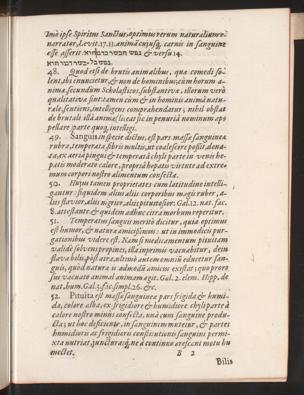 Imò ipse Spiritus Sanctus, optimus rerum naturalium enarrator, Levit. 17. 11. animā cujusq́; carnis in sanguine
esse asserit. נפש הבשר בדם הוא & versu 14.
נפש כל-בשר דמו הוא
48. Quod etsi de brutis animalibus, quæ comedi solent, ibi enuncietur, & non de hominibus; cùm horum anima, secundùm Scholasticos, substantivæ, illorum verò
qualitativæ sint: tamen cùm & in homine anima naturale, sentiens, intelligens comprehendatur; nihil obstat
de brutali illâ animæ, licet sic in penuriâ nominum appellare parte quoq́; intelligi.
49. Sanguis in specie dictus, est pars massæ sanguineæ
rubra, temperata, fibris multis, ut coalescere possit, donata, ex aeria pingui & temperatâ chyli parte in venis hepatis moderato calore, propriâ hepatis virtute ad extremum corpori nostro alimentum confecta.
50. Hujus tamen proprietates cum latitudine intelligantur: siquidem alius alio corporibus magis ruber, alius flavior, alius nigrior, alius pituitosior: Gal. 12. nat. fac.
8. attestante, & quidem adhuc citra morbum reperitur.
51. Temperatus sanguis meritò dicitur, quia optimus
est humor, & natura amicissimus: ut in immodicis purgationibus videre est. Nam si medicamentum pituitam
validè solvens propines, illa inprimis vacuabitur, dein
flava bilis, pòst atra, ultimò autem omniū educetur sanguis, quòd natura is admodū amicus existat; quo prorsus vacuato animal animam agit. Gal. 2. elem. Hipp. de
nat. hum. Gal. 5. fac. simpl. 26. &c.
52. Pituita est massæ sanguineæ pars frigida & humida, colore alba, ex frigidiore & humidiore chyli parte à
calore nostro minùs confecta, unà cum sanguine producta; ut hac deficiente, in sanguinem mutetur, & partes
humidioris ac frigidioris constitutionis sanguini permixta nutriat, juncturasq́; ne à continuo arescant motu humectet.
B 2
Bilis